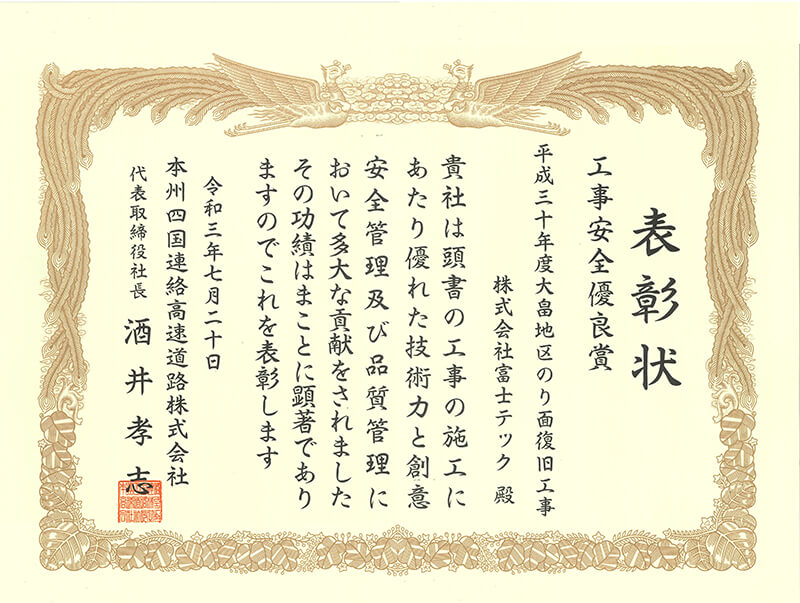 表彰状
工事安全優良賞
平成三十年度大畠地区のり面復旧工事
株式会社富士テック 殿
貴社は頭書の工事の施工に
あたり優れた技術力と創意
安全管理及び品質管理に
おいて多大な貢献をされました
その功績はまことに顕著であり
ますのでこれを表彰します
令和三年七月二十日
本州四国連絡高速道路株式会社
代表取締役社長 酒井孝志